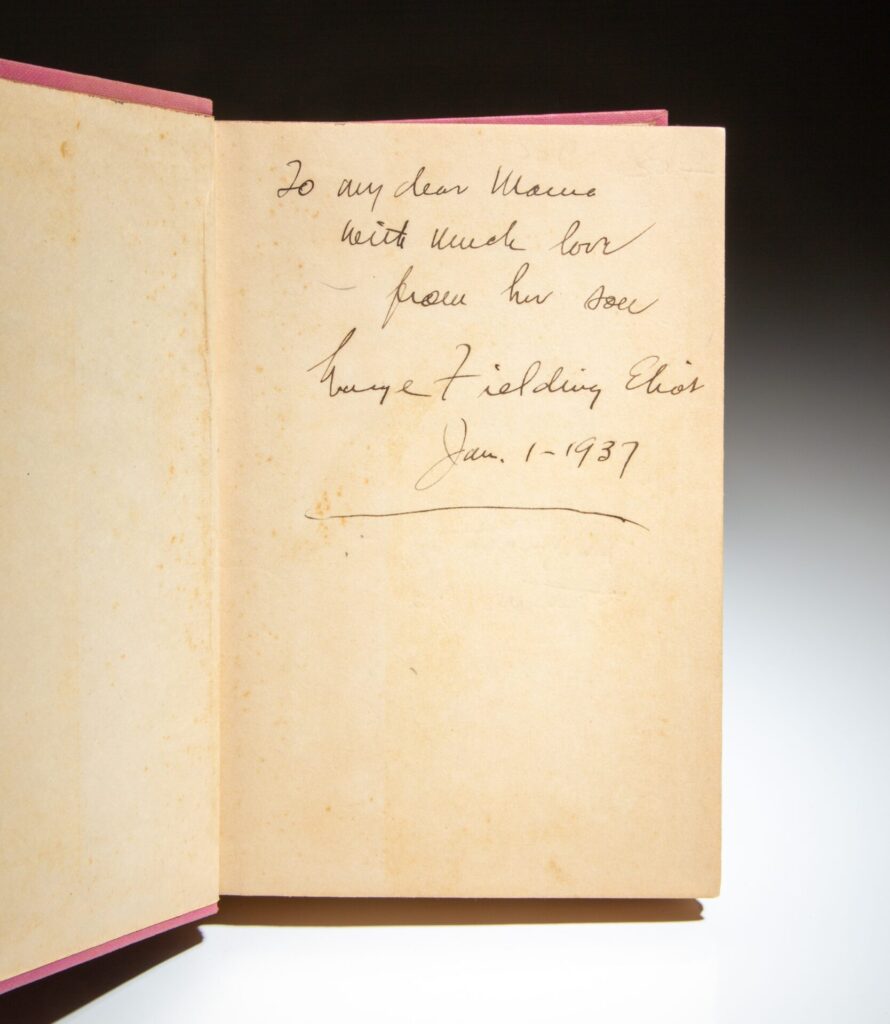 To my dear Mama
with much love
from her son
George Fielding Eliot
Jan. 1-1937